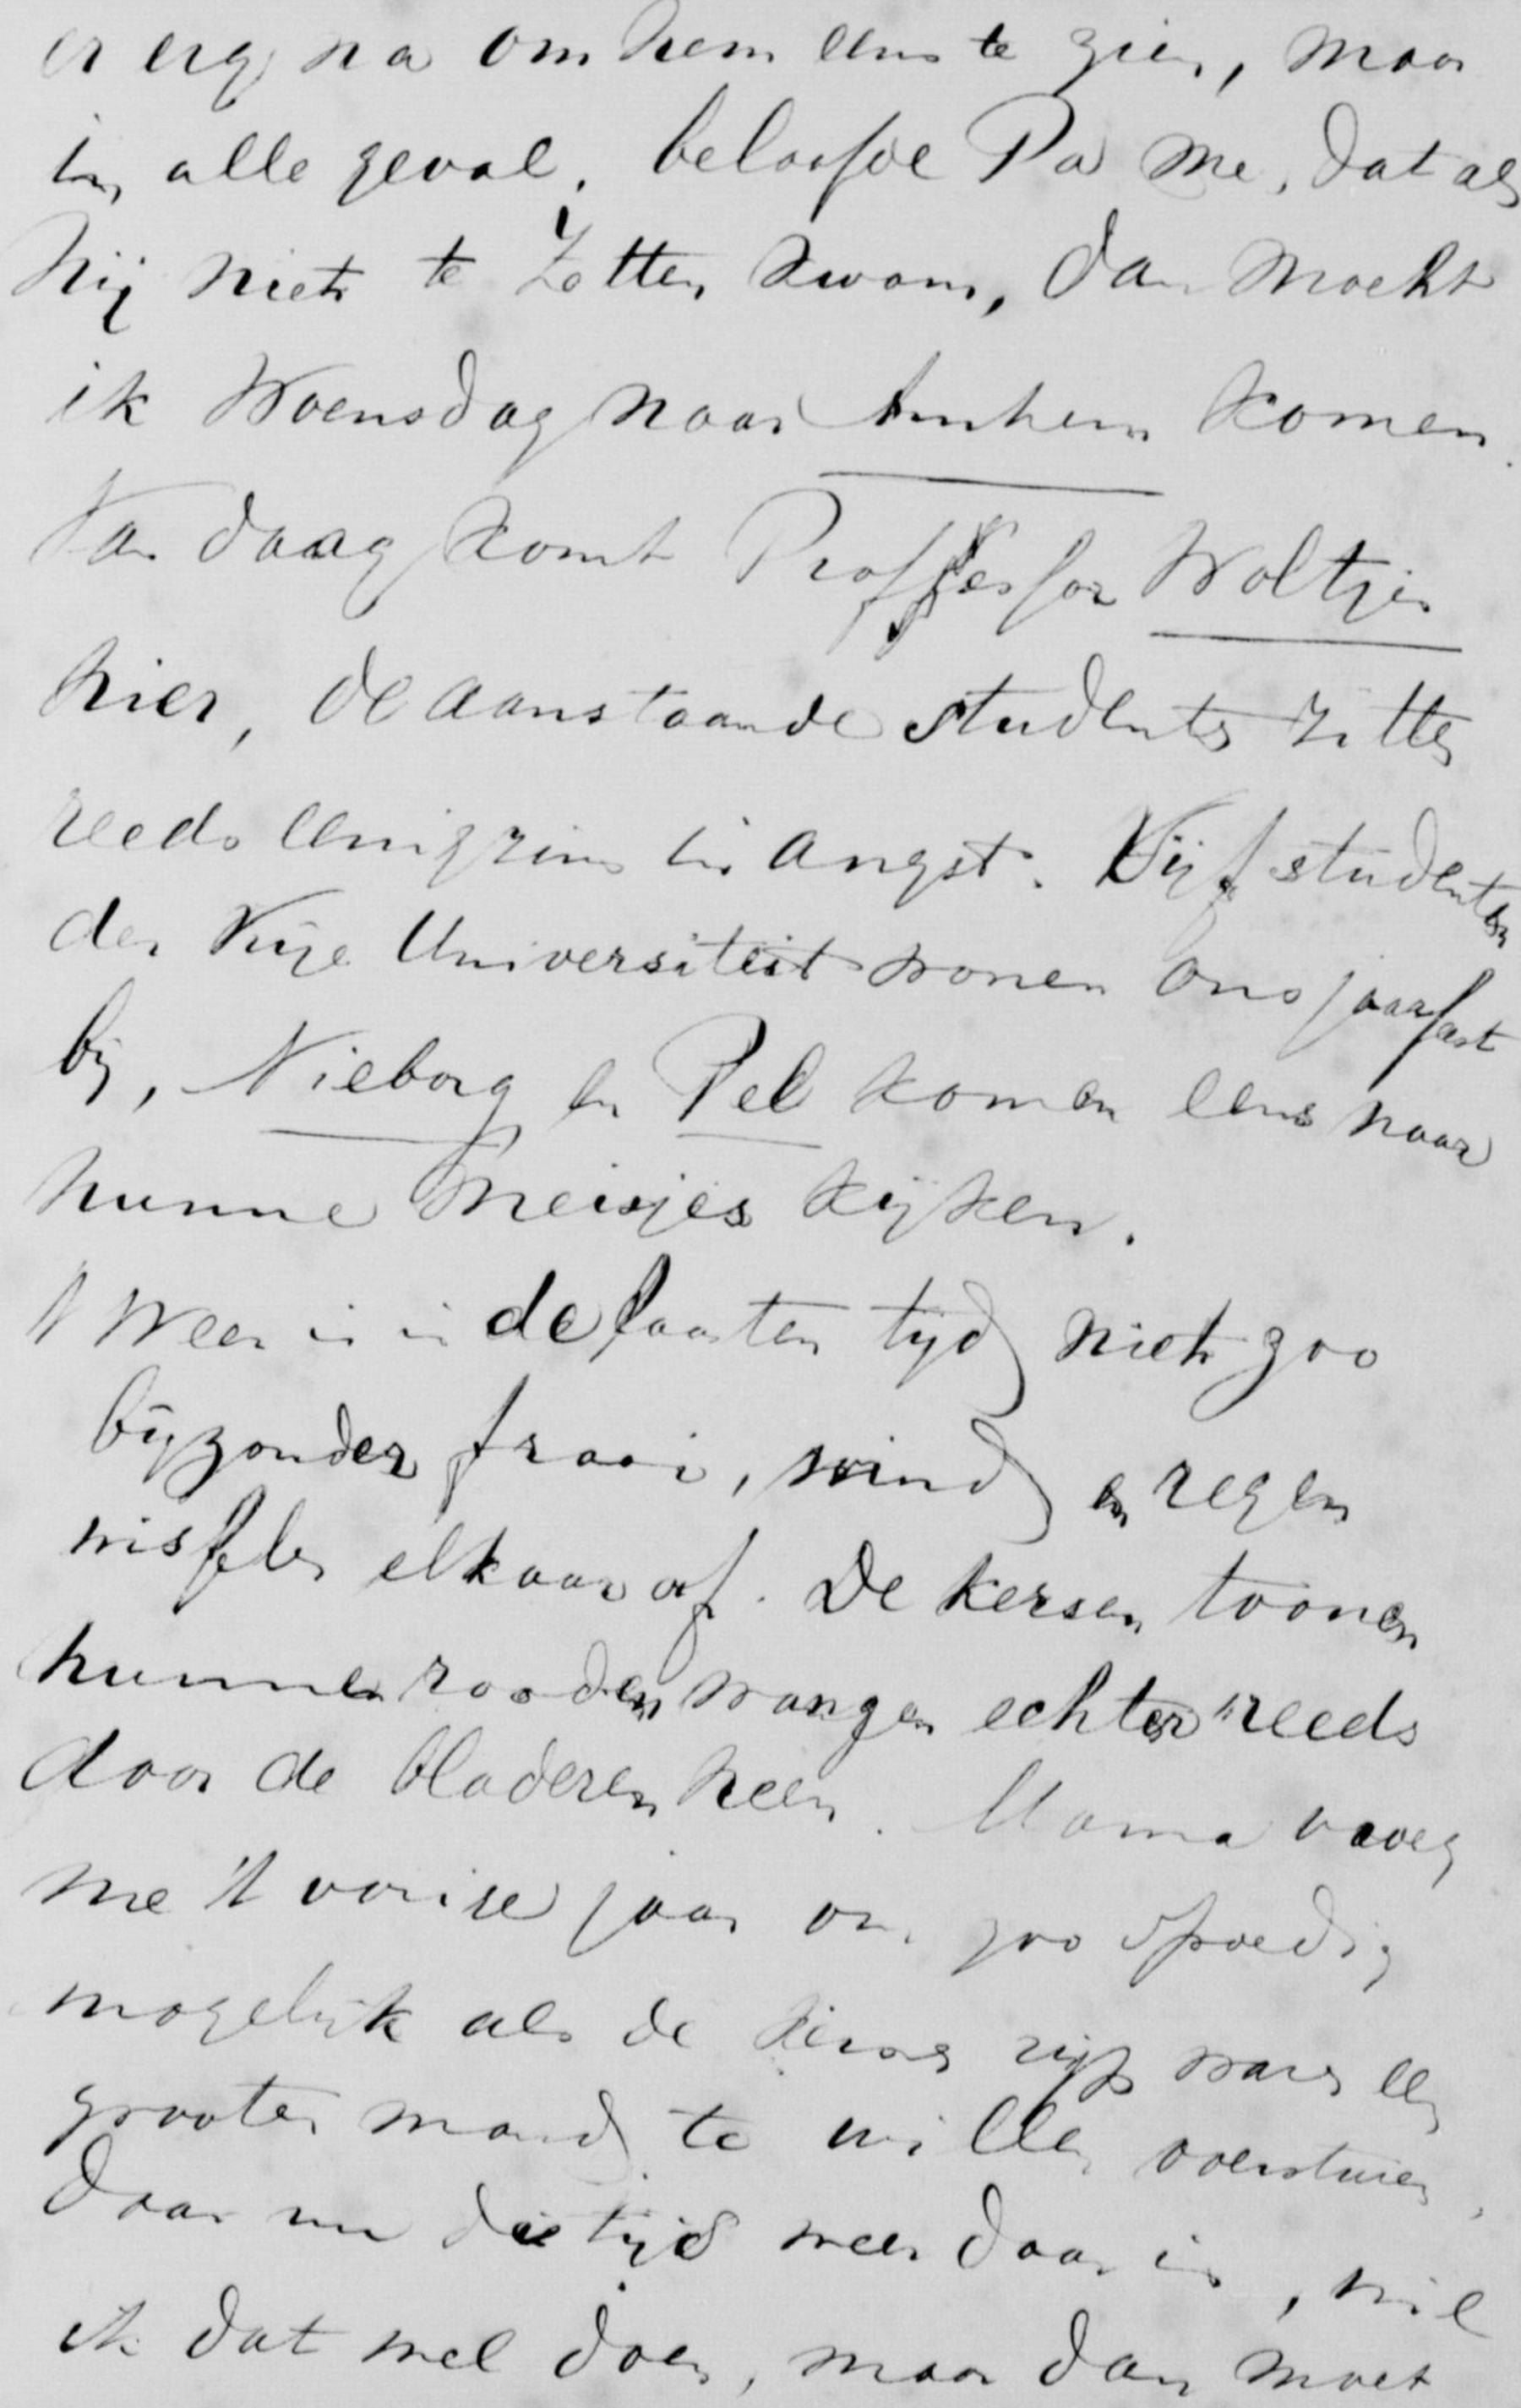 er erg na om hem eens te zien, maar
in alle geval, beloofde Pa me, dat als
hij niet te Zetten kwam, dan mocht
ik Woensdag naar Arnhem komen.
Van daag komt Proffessor Woltjer
hier, de aanstaande studenten zitten
reeds eenigzins in angst. Vijf studenten
der Vrije Universiteit wonen ons jaarfeest
bij, Nieborg en Pel komen eens naar
hunne meisjes kijken.
't Weer is in de laatsten tijd niet zoo
bijzonder fraai, wind en regen
wisselen elkaar af. De kersen toonen
hunne rooden wangen echter reeds
door de bladeren heen. Mama vroeg
me 't vorige jaar om zoo spoedig
mogelijk als de kersen rijp waren een
grooten mand te willen oversturen,
daar nu die tijd weer daar is, wil
ik dat wel doen, maar dan moet